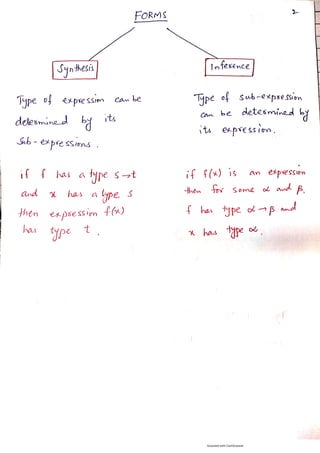 FORMS
2
Synthesis
Inference
Type of expression can be
determined by its
Sub-expressions.
if f has a type s→t
and x has a type s
then expression f(x)
has type t.
Type of sub-expression
can be determined by
its expression.
if f(x) is an expression
then for some α and β.
f has type α→β and
x has type α.
Scanned with CamScanner